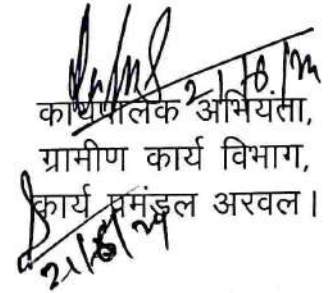 कार्यपालक अभियंता,
ग्रामीण कार्य विभाग,
कार्य प्रमंडल अरवल।